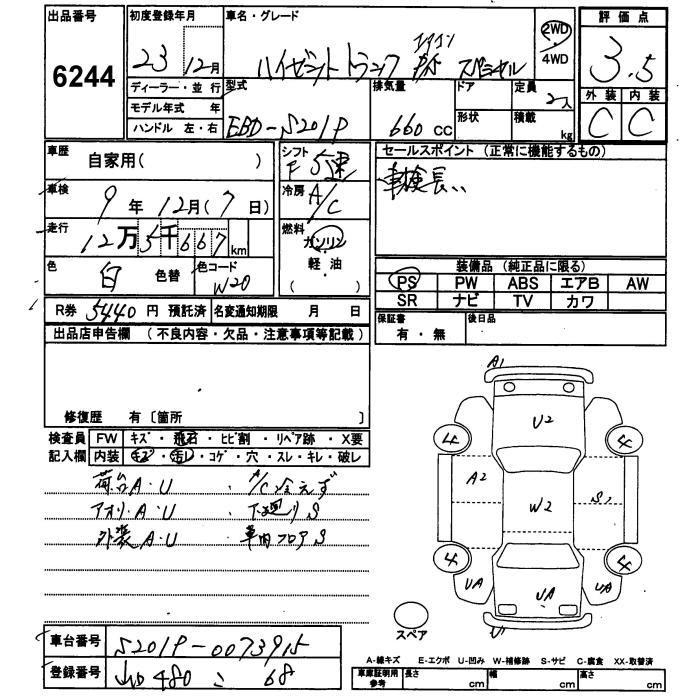 出品番号 初度登録年月 車名・グレード 評価点
6244 23年12月 ハイゼットトラック スペシャル 2WD 4WD 3.5
ディーラー・並行 型式 排気量 ドア 定員 2人 外装 内装
モデル年式 年 形状 積載 C C
ハンドル 左・右 EBD-S201P 660 CC kg
車歴 自家用( ) シフト F5速 セールスポイント (正常に機能するもの)
車検 9年 12月(7日) 冷房 A/C 車検長い
走行 12万5千667km 燃料 ガソリン
軽油
( )
装備品 (純正品に限る)
色 白 色替 色コード W20 PS PW ABS エアB AW
SR ナビ TV カワ
R券 5440円 預託済 名変通知期限 月 日 保証書 有・無 後日品
出品店申告欄 (不良内容・欠品・注意事項等記載)
修復歴 有 〔箇所 〕
検査員 FW キズ・飛石・ヒビ割・リペア跡・X要
記入欄 内装 キズ・汚レ・コゲ・穴・スレ・キレ・破レ
荷台A・U A/C冷えず
アオリ・A・U 下廻りS
外装A・U 車内フロアS
A1
U2
4 4
A2 W2 S1
4 4
UA UA UA
U1
スペア
車台番号 S201P-0073915
登録番号 480 こ 68
A-線キズ E-エクボ U-凹み W-補修跡 S-サビ C-腐食 XX-取替済
車庫証明用参考 長さ cm 幅 cm 高さ cm